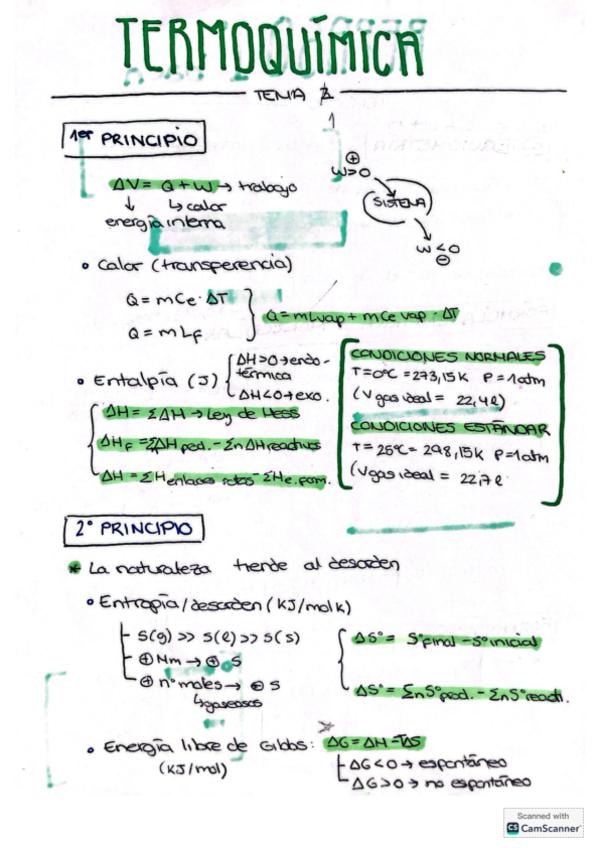 TERMOQUÍMICA
TEMA 1
1er PRINCIPIO
ΔV= Q+W → trabajo
↳ calor
energía interna
⊕
W>0
SISTEMA
W<0
⊖
• Calor (transferencia)
Q = mCe· ΔT
Q = mLf
Q = mLvap + mCe vap · ΔT
• Entalpía (J)
ΔH>0 → endo-
térmica
ΔH<0 → exo.
ΔH = ΣΔH → Ley de Hess
ΔHf = ΣΔH prod. - ΣnΔHreactivos
ΔH = ΣH enlaces rotos - ΣHe. form.
CONDICIONES NORMALES
T=0ºC = 273,15K P=1atm
(Vgas ideal = 22,4l)
CONDICIONES ESTÁNDAR
T= 25ºC= 298,15K P=1atm
(Vgas ideal = 22,7l
2º PRINCIPIO
* La naturaleza tiende al desorden
• Entropía/desorden (KJ/molk)
S(g) >> S(l) >> S(s)
⊕ Nm → ⊕ S
⊕ nº moles → ⊕ S
↳ gaseosos
ΔSº = Sºfinal - Sºinicial
ΔSº = ΣnSºprod. - ΣnSºreacti.
• Energía libre de Gibbs: ΔG = ΔH - TΔS
(KJ/mol)
ΔG<0 → espontáneo
ΔG>0 → no espontáneo
Scanned with
CS CamScanner